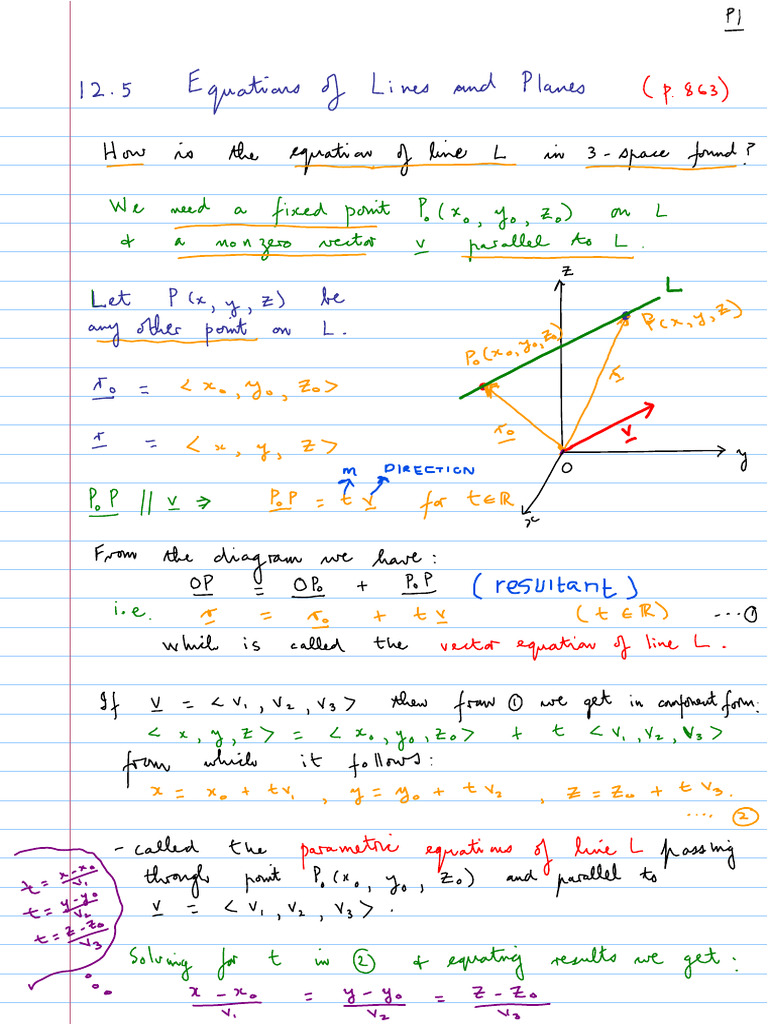 P1
12.5 Equations of Lines and Planes (p. 863)
How is the equation of line L in 3-space found?
We need a fixed point P₀(x₀, y₀, z₀) on L
& a nonzero vector v parallel to L.
Let P(x, y, z) be
any other point on L.
r₀ = <x₀, y₀, z₀>
r = <x, y, z>
z
L
P₀(x₀, y₀, z₀)
P(x, y, z)
r
r₀
v
O
y
x
m DIRECTION
P₀P // v ⇒ P₀P = t v for t ∈ ℝ
From the diagram we have:
OP = OP₀ + P₀P (resultant)
i.e. r = r₀ + t v (t ∈ ℝ) ...①
which is called the vector equation of line L.
If v = <v₁, v₂, v₃> then from ① we get in component form:
<x, y, z> = <x₀, y₀, z₀> + t <v₁, v₂, v₃>
from which it follows:
x = x₀ + tv₁, y = y₀ + tv₂, z = z₀ + tv₃.
.... ②
- called the parametric equations of line L passing
through point P₀(x₀, y₀, z₀) and parallel to
v = <v₁, v₂, v₃>.
t = (x-x₀)/v₁
t = (y-y₀)/v₂
t = (z-z₀)/v₃
Solving for t in ② & equating results we get:
(x - x₀)/v₁ = (y - y₀)/v₂ = (z - z₀)/v₃